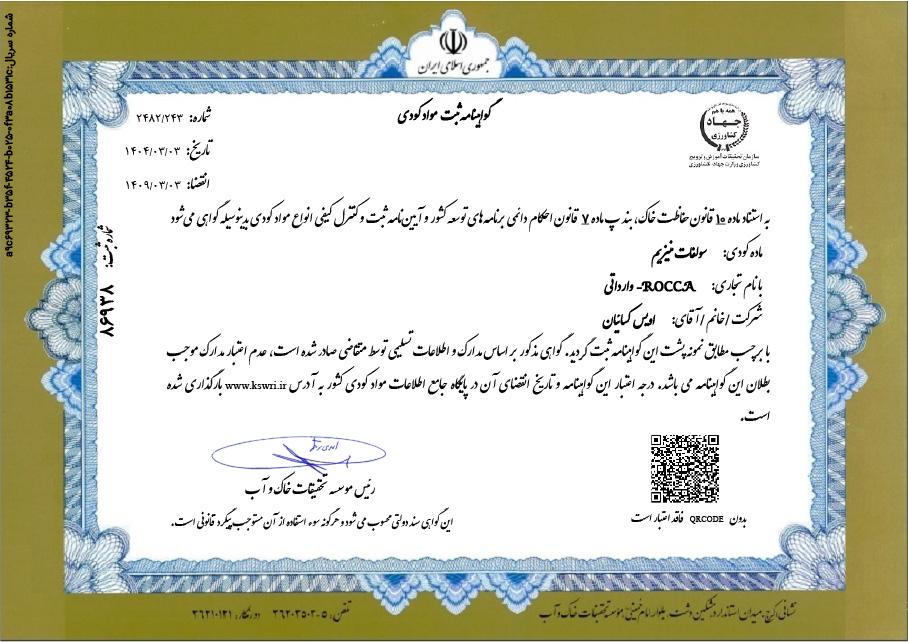 جمهوری اسلامی ایران
گواهینامه ثبت مواد کودی
شماره: ۲۴۸۲/۲۴۳
تاریخ: ۱۴۰۴/۰۳/۰۳
انقضا: ۱۴۰۹/۰۳/۰۳
همه با هم
جهاد
کشاورزی
سازمان تحقیقات، آموزش و ترویج
کشاورزی وزارت جهاد کشاورزی
به استناد ماده ۱۰ قانون حفاظت خاک، بند پ ماده ۷ قانون احکام دائمی برنامه های توسعه کشور و آیین نامه ثبت و کنترل کیفی انواع مواد کودی بدینوسیله گواهی می شود
ماده کودی: سولفات منیزیم
با نام تجاری: ROCCA- وارداتی
شرکت / خانم / آقای: اویس کسائیان
با برچسب مطابق نمونه پشت این گواهینامه ثبت گردید. گواهی مذکور بر اساس مدارک و اطلاعات تسلیمی توسط متقاضی صادر شده است، عدم اعتبار مدارک موجب
بطلان این گواهینامه می باشد. درجه اعتبار این گواهینامه و تاریخ انقضای آن در پایگاه جامع اطلاعات مواد کودی کشور به آدرس www.kswri.ir بارگذاری شده
است.
رئیس موسسه تحقیقات خاک و آب
بدون QRCODE فاقد اعتبار است
این گواهی سند دولتی محسوب می شود و هرگونه سوء استفاده از آن مستوجب پیگرد قانونی است.
نشانی: کرج، میدان استاندارد، مشکین دشت، بلوار امام خمینی، موسسه تحقیقات خاک و آب
تلفن: ۵-۳۶۲۰۳۵۰۳ دورنگار: ۳۶۲۱۰۱۲۱
شماره ثبت: ۸۶۹۳۸
شماره سریال: